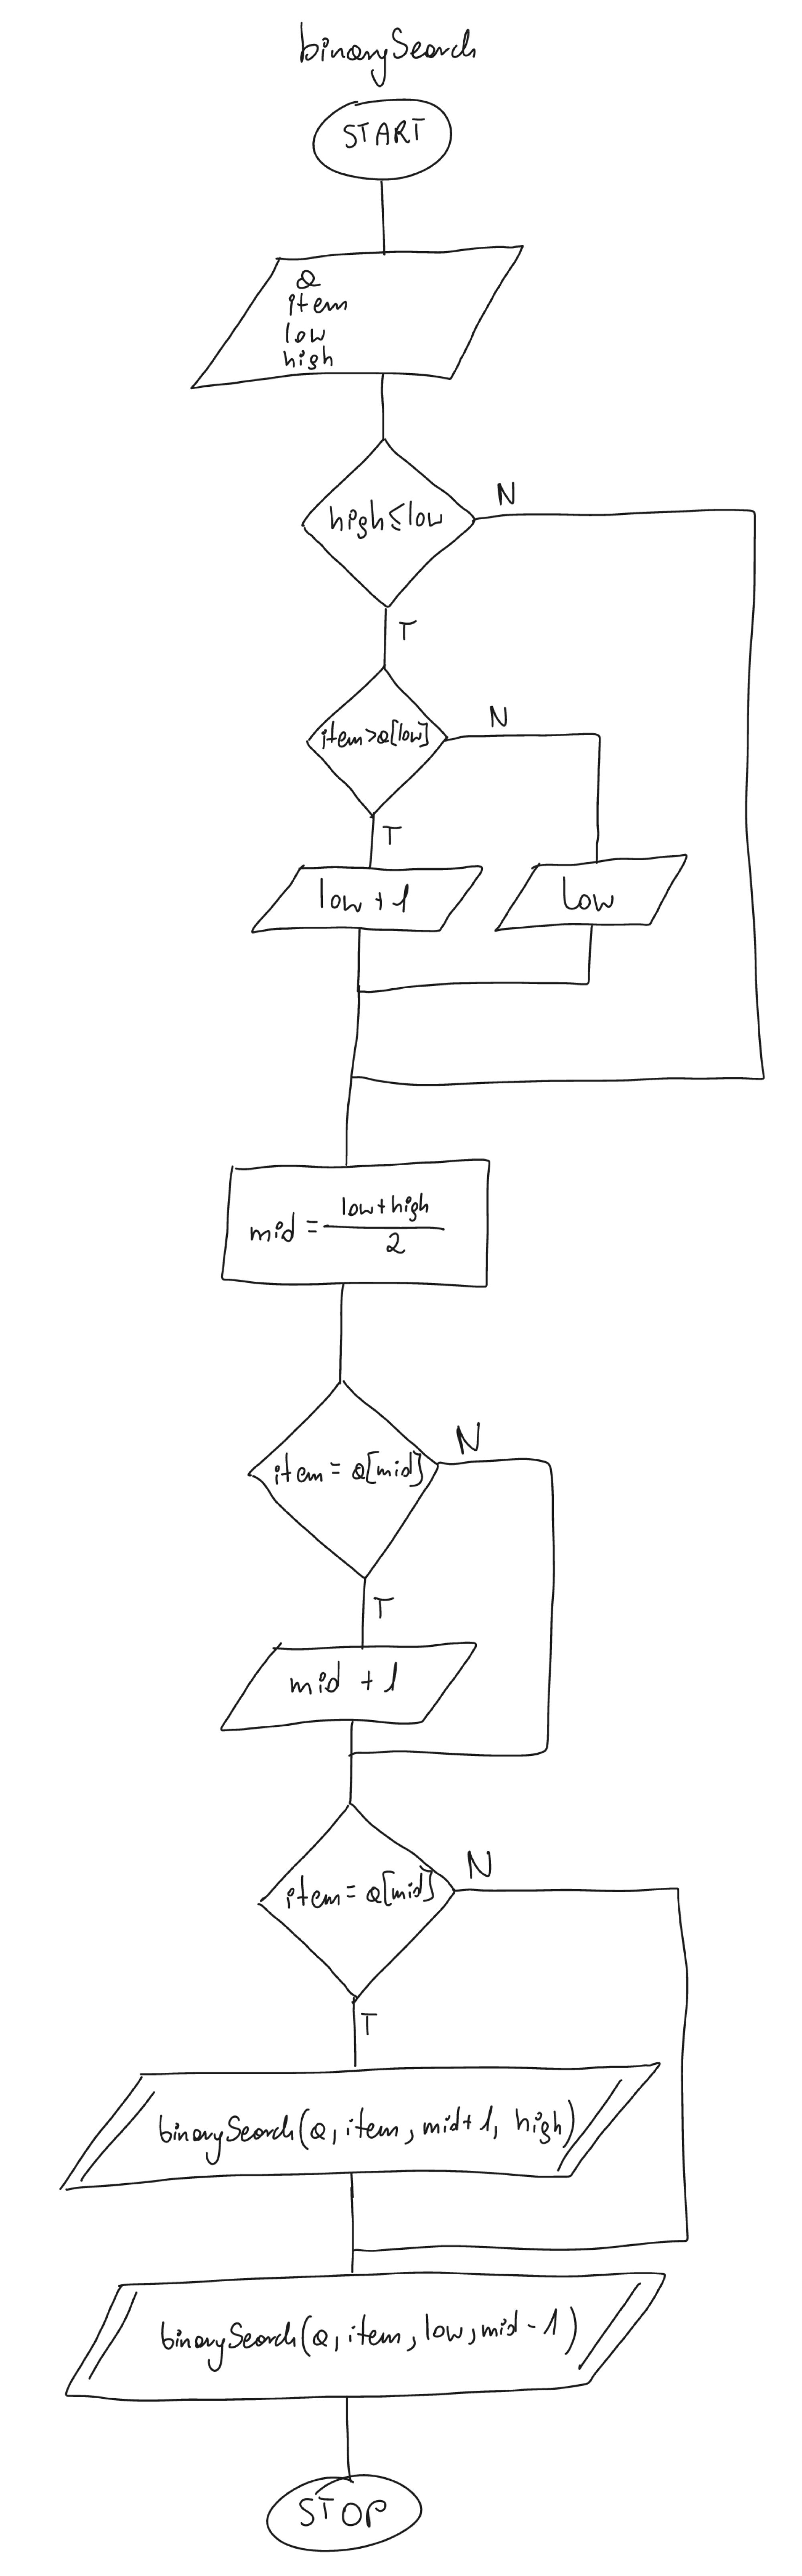 binarySearch
START
a
item
low
high
high≤low
N
T
item>a[low]
N
T
low + 1
low
mid = low+high
2
item = a[mid]
N
T
mid + 1
item = a[mid]
N
T
binarySearch(a, item, mid+1, high)
binarySearch(a, item, low, mid-1)
STOP